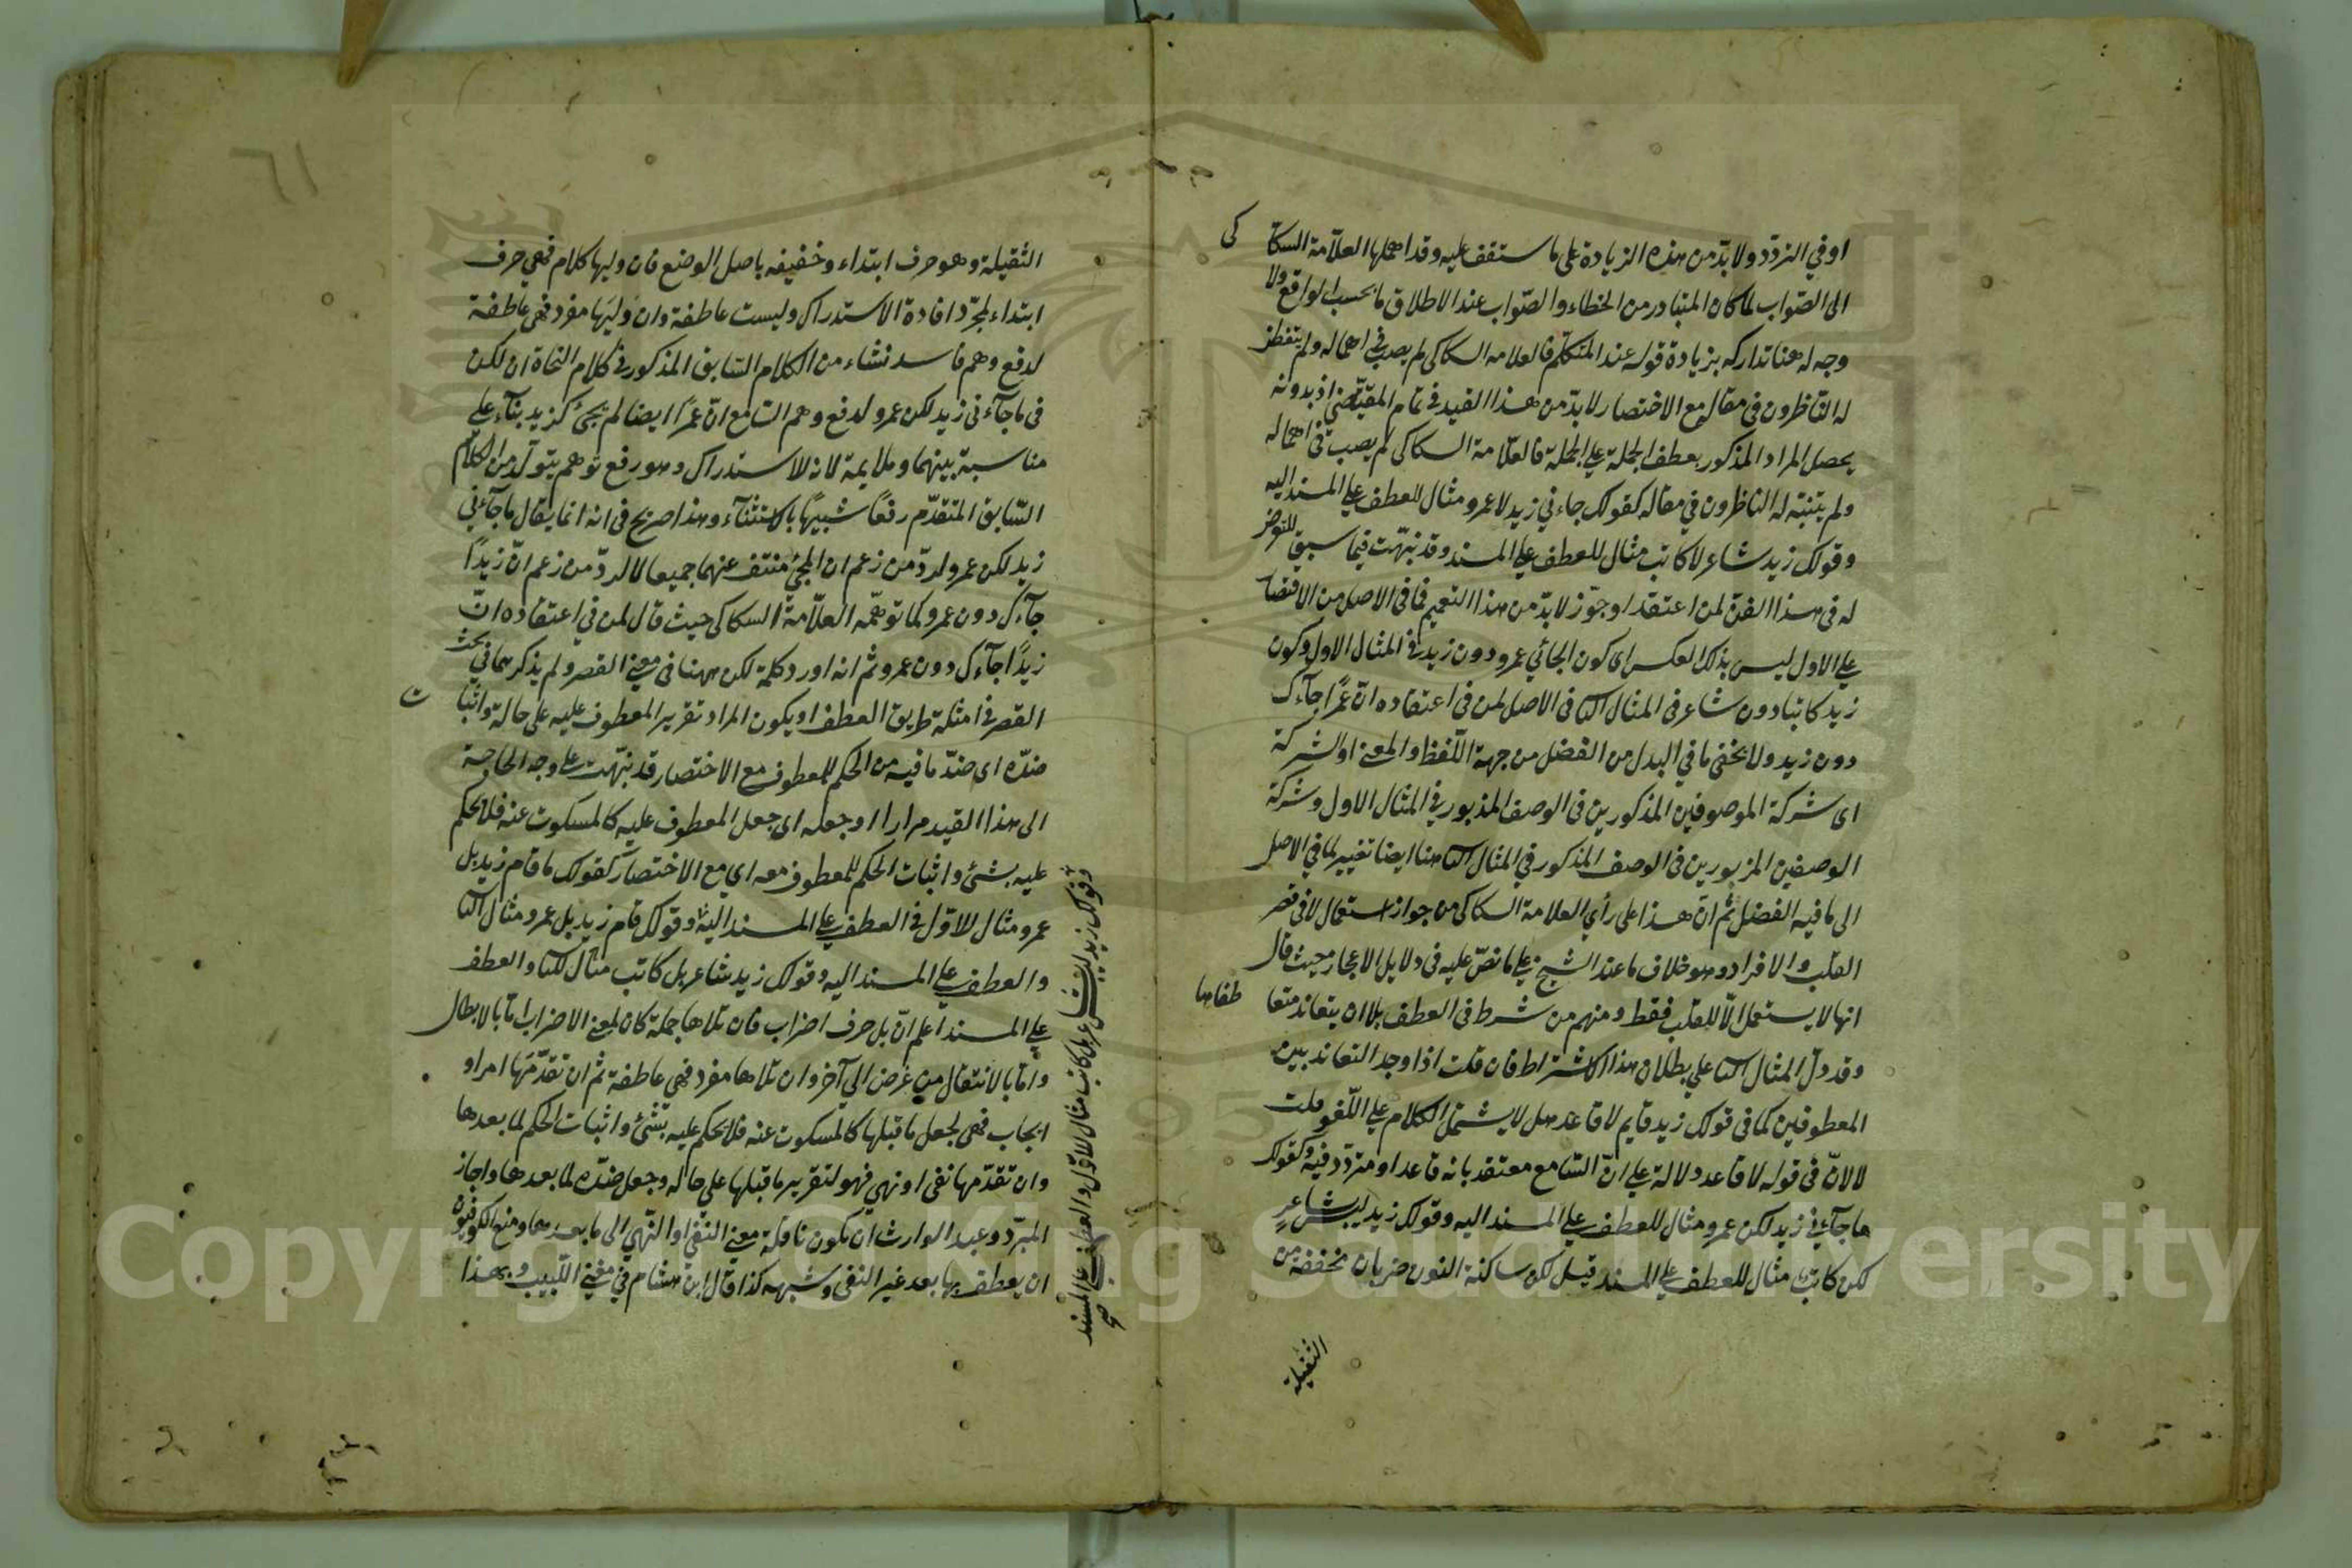 او في التردّد ولا بدّ من هذه الزيادة على ما ستقف عليه وقد اهملها العلّامة السكاكى
الى الصّواب لما كان المتبادر من الخطاء والصّواب عند الاطلاق ما بحسب الواقع ولا
وجه له هنا تداركه بزيادة قوله عند المتكلّم فالعلامه السكاكى لم يصب في اهماله ولم يتفطن
له النّاظرون فى مقاله مع الاختصار لا بدّ من هذا القيد فى تمام اذ بدونه
يحصل المراد المذكور بعطف الجملة على الجملة فالعلّامة السكاكى لم يصب فى اهماله
ولم يتنبّه له الناظرون في مقاله كقولك جاءني زيد لا عمرو مثال للعطف على المسند اليه
وقولك زيد شاعر لا كاتب مثال للعطف على المسند وقد نبّهت فيما سبق للتعرض
له فى هذا الفنّ لمن اعتقد او جوّز لا بدّ من هذا التعميم فما فى الاصل من الاقتصار
على الاول ليس بذلك العكس اى كون الجائي عمرو دون زيد في المثال الاول وكون
زيد كاتبا دون شاعر فى المثال الثا فى الاصل لمن فى اعتقاده انّ عمرًا جآءك
دون زيد ولا يخفى ما في البدل من الفضل من جهة اللّفظ والمعنى او الشركة
اى شركة الموصوفين المذكورين فى الوصف المزبور في المثال الاول وشركة
الوصفين المزبورين فى الوصف المذكور في المثال الثا هنا ايضا تغيير لما في الاصل
الى ما فيه الفضل ثم انّ هذا على رأي العلامة السكاكى من جواز استعمال لا فى قصر
القلب والافراد وهو خلاف ما عند الشيخ على ما نصّ عليه فى دلايل الاعجاز حيث قال
انها لا يستعمل الّا للقلب فقط ومنهم من شرط فى العطف بلا ان يتعاند متعاطفاها
وقد دلّ المثال الثا على بطلان هذا الاشتراط فان قلت اذا وجد التعاند بين
المعطوفين كما فى قولك زيد قايم لا قاعد هل لا يشتمل الكلام على اللّغو قلت
لا لانّ فى قوله لا قاعد دلالة على انّ السّامع معتقد بانه قاعد او متردّد فيه وكقولك
ما جآءني زيد لكن عمرو مثال للعطف على المسند اليه وقولك زيد ليس بشاعرٍ
لكن كاتبٌ مثال للعطف على المسند قيل لكن ساكنة النون ضربان مخففة من
الثقيلة
الثقيلة وهو حرف ابتداء وخفيفه باصل الوضع فان وليها كلام فهي حرف
ابتداء لمجرّد افادة الاستدراك وليست عاطفة وان وليَها مفرد فهى عاطفة
لدفع وهم فاسد نشاء من الكلام السّابق المذكور في كلام النحاة ان لكن
فى ما جآءنى زيد لكن عمرو لدفع وهم السّامع انّ عمرًا ايضا لم يجئ كزيد بنآء على
مناسبة بينهما وملايمة لانه للاستدراك وهو رفع توهم يتولّد من الكلام
السّابق المتقدّم رفعًا شبيهًا بالاستثنآء وهذا صريح فى انه انما يقال ما جآءني
زيد لكن عمرو لردّ من زعم ان المجئ منتف عنهما جميعا لا لردّ من زعم انّ زيدًا
جآءك دون عمرو كما توهّمه العلّامة السكاكى حيث قال لمن في اعتقاده انّ
زيدًا جآءك دون عمرو ثم انه اورد كلمة لكن ههنا فى معنى القصر ولم يذكرها في بحث
القصر في امثلة طريق العطف او يكون المراد تقرير المعطوف عليه على حالة واثبات
ضدّه اى ضدّ ما فيه من الحكم للمعطوف مع الاختصار قد نبّهت على وجه الحاجة
الى هذا القيد مرارا او جعله اى جعل المعطوف عليه كالمسكوت عنه فلا يحكم
عليه بشئ واثبات الحكم للمعطوف معه اي مع الاختصار كقولك ما قام زيد بل
عمرو مثال للاوّل في العطف على المسند اليه وقولك قام زيد بل عمرو مثال الثا
والعطف على المسند اليه وقولك زيد شاعر بل كاتب مثال للثا والعطف
على المسند اعلم انّ بل حرف اضراب فان تلاها جملة كان لمعنى الاضراب امّا بالابطال
وامّا بالانتقال من غرض الى آخر وان تلاها مفرد فهى عاطفة ثم ان تقدّمَها امر او
ايجاب فهى لجعل ما قبلها كالمسكوت عنه فلا يحكم عليه بشئ واثبات الحكم لما بعدها
وان تقدّمها نفى او نهي فهو لتقرير ما قبلها على حاله وجعل ضدّه لما بعدها واجاز
المبرّد وعبد الوارث ان يكون ناقلة معنى النّفى او النّهي الى ما بعدها ومنع الكوفيون
ان يعطف بها بعد غير النفى وشبهه كذا قال ابن هشام في مغنى اللّبيب وبهذا
وقولك زيد ليس بشاعر بل كاتب مثال للاوّل والعطف على المسند
صح
٦١